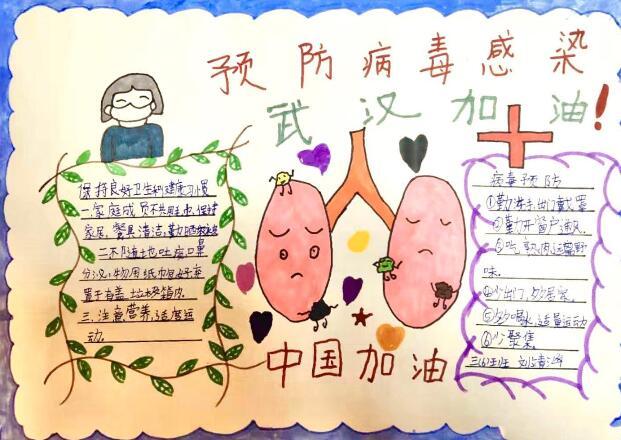 预防病毒感染
武汉加油!
保持良好卫生和健康习惯
一.家庭成员不共用毛巾,保持
家居、餐具清洁,勤晒衣被
二.不随地吐痰,口鼻
分泌物用纸巾包好弃
置于有盖垃圾箱内
三.注意营养,适度运
动.
病毒预防
①勤洗手,出门戴罩
②勤开窗户通风
③吃熟肉远离野
味.
④少出门,多居家.
⑤多喝水,适量运动
⑥少聚集.
三(6)班
中国加油